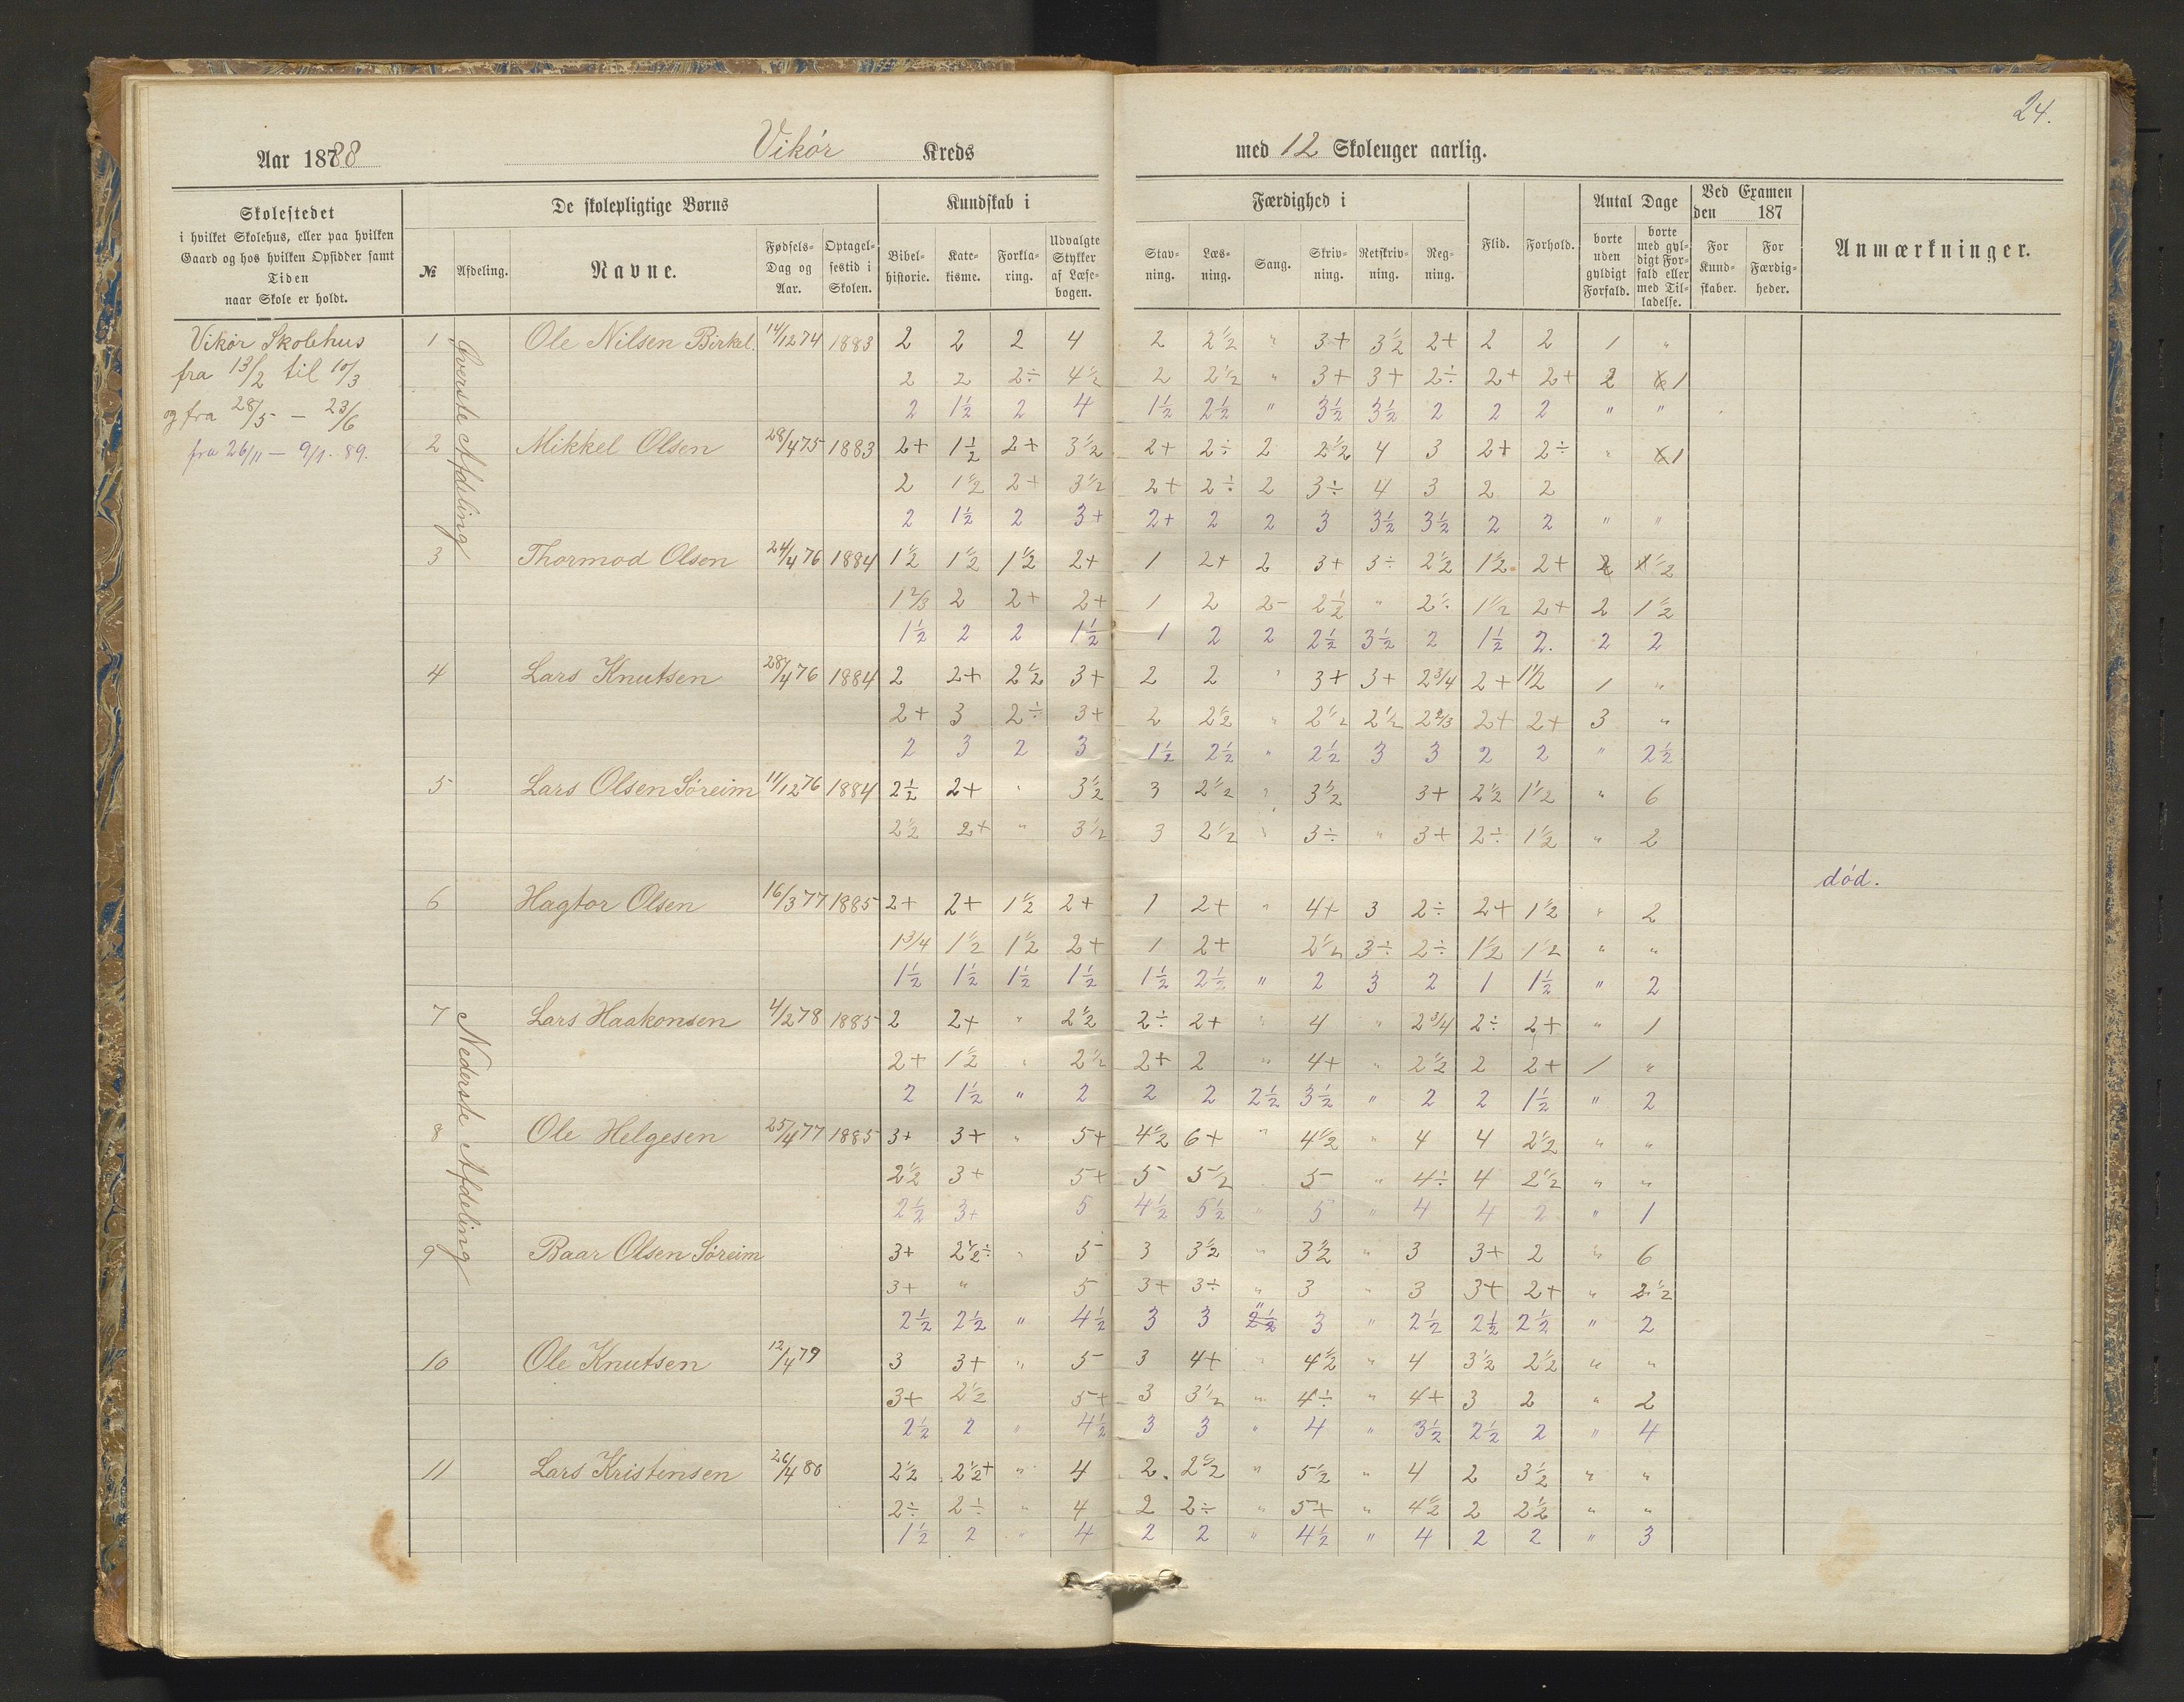 24.
Aar 18788 Vikör Kreds med 12 Skoleuger aarlig.
Skolestedet
i hvilket Skolehus, eller paa hvilken
Gaard og hos hvilken Opsidder samt
Tiden
naar Skole er holdt.
De skolepligtige Børns
№ Afdeling. Navne. Fødsels-Dag og Aar. Optagelsestid i Skolen.
Kundskab i
Bibelhistorie. Katekisme. Forklaring. Udvalgte Stykker af Læsebogen.
Færdighed i
Stavning. Læsning. Sang. Skrivning. Retskrivning. Regning.
Flid. Forhold.
Antal Dage
borte uden gyldigt Forfald. borte med gyldigt Forfald eller med Tilladelse.
Ved Examen den 187
For Kundskaber. For Færdigheder.
Anmærkninger.
Vikör Skolehus
fra 13/2 til 10/3
og fra 28/5 — 23/6
fra 26/11 — 9/1. 89.
Øverste Afdeling
1 Ole Nilsen Birkel. 14/12 74 1883 2 2 2 4 2 2 1/2 " 3+ 3 1/2 2+ 2 2 1 "
2 2 2÷ 4 1/2 2 2 1/2 " 3+ 3+ 2÷ 2+ 2+ 2 1
2 1 1/2 2 4 1 1/2 2 1/2 " 3 1/2 3 1/2 2 2 2 " "
2 Mikkel Olsen 28/4 75 1883 2+ 1 1/2 2+ 3 1/2 2+ 2÷ 2 2 1/2 4 3 2+ 2÷ " 1
2 1 1/2 2+ 3 1/2 2+ 2÷ 2 3÷ 4 3 2 2
2 1 1/2 2 3+ 2+ 2 2 3 3 1/2 3 1/2 2 2 " "
3 Thormod Olsen 24/4 76 1884 1 1/2 1 1/2 1 1/2 2+ 1 2+ 2 3+ 3÷ 2 1/2 1 1/2 2+ 2 1 1/2
1 2/3 2 2+ 2+ 1 2 2- 2 1/2 " 2÷ 1 1/2 2+ 2 1 1/2
1 1/2 2 2 1 1/2 1 2 2 2 1/2 3 1/2 2 1 1/2 2. 2 2
4 Lars Knutsen 28/4 76 1884 2 2+ 2 1/2 3+ 2 2 " 3+ 3+ 2 3/4 2+ 1 1/2 1 "
2+ 3 2÷ 3+ 2 2 1/2 " 2 1/2 2 1/2 2 2/3 2+ 2+ 3 "
2 3 2 3 1 1/2 2 1/2 " 2 1/2 3 3 2 2 " 2 1/2
5 Lars Olsen Söreim 11/12 76 1884 2 1/2 2+ " 3 1/2 3 2 1/2 " 3 1/2 3+ 2 1/2 1 1/2 " 6
2 1/2 2+ " 3 1/2 3 2 1/2 " 3÷ " 3+ 2÷ 1 1/2 " 2
död.
6 Hagtor Olsen 16/3 77 1885 2+ 2+ 1 1/2 2+ 1 2+ " 4+ 3 2÷ 2+ 1 1/2 " 2
1 3/4 1 1/2 1 1/2 2+ 1 2+ 2 1/2 3÷ 2÷ 1 1/2 1 1/2 " "
1 1/2 1 1/2 1 1/2 1 1/2 1 1/2 2 1/2 " 2 3 2 1 1 1/2 " 2
Nederste Afdeling
7 Lars Haakonsen 4/2 78 1885 2 2+ " 2 1/2 2÷ 2+ " 4 " 2 3/4 2÷ 2+ " 1
2+ 1 1/2 " 2 1/2 2+ 2 " 4+ " 2 1/2 2 2+ 1 "
2 1 1/2 " 2 2 2 2 1/2 3 1/2 " 2 2 1 1/2 " 2
8 Ole Helgesen 25/4 77 1885 3+ 3+ " 5+ 4 1/2 6+ " 4 1/2 " 4 4 2 1/2 " "
2 1/2 3+ 5+ 5 5 1/2 5 " 4÷ 4 2 1/2 " "
2 1/2 3+ 5 4 1/2 5 1/2 " 5 " 4 4 2 " 1
9 Baar Olsen Söreim 3+ 2 1/2÷ " 5 3 3 1/2 " 3 1/2 " 3 3+ 2 " 6
3+ " 5 3+ 3÷ " 3 " 3 3+ 2+ " 2 1/2
2 1/2 2 1/2 " 4 1/2 3 3 2 1/2 3 " 2 1/2 2 1/2 2 1/2 " 2
10 Ole Knutsen 12/4 79 3 3+ " 5 3 4+ " 4 1/2 " 4 3 1/2 2 1/2 " "
3+ 2 1/2 5+ 3 3 1/2 " 4÷ " 4+ 3 2 " 2
2 1/2 2 " 4 1/2 3 3 " 4 " 3 1/2 2 1/2 2 " 4
11 Lars Kristensen 26/4 80 2 1/2 2 1/2+ " 4 2. 2 1/2 " 5 1/2 " 4 2 3 1/2 " "
2÷ 2÷ " 4 2 2÷ " 5+ " 4 1/2 2 2 1/2 " "
1 1/2 2 " 4 2 2 " 4 1/2 " 4 2 2 " 3